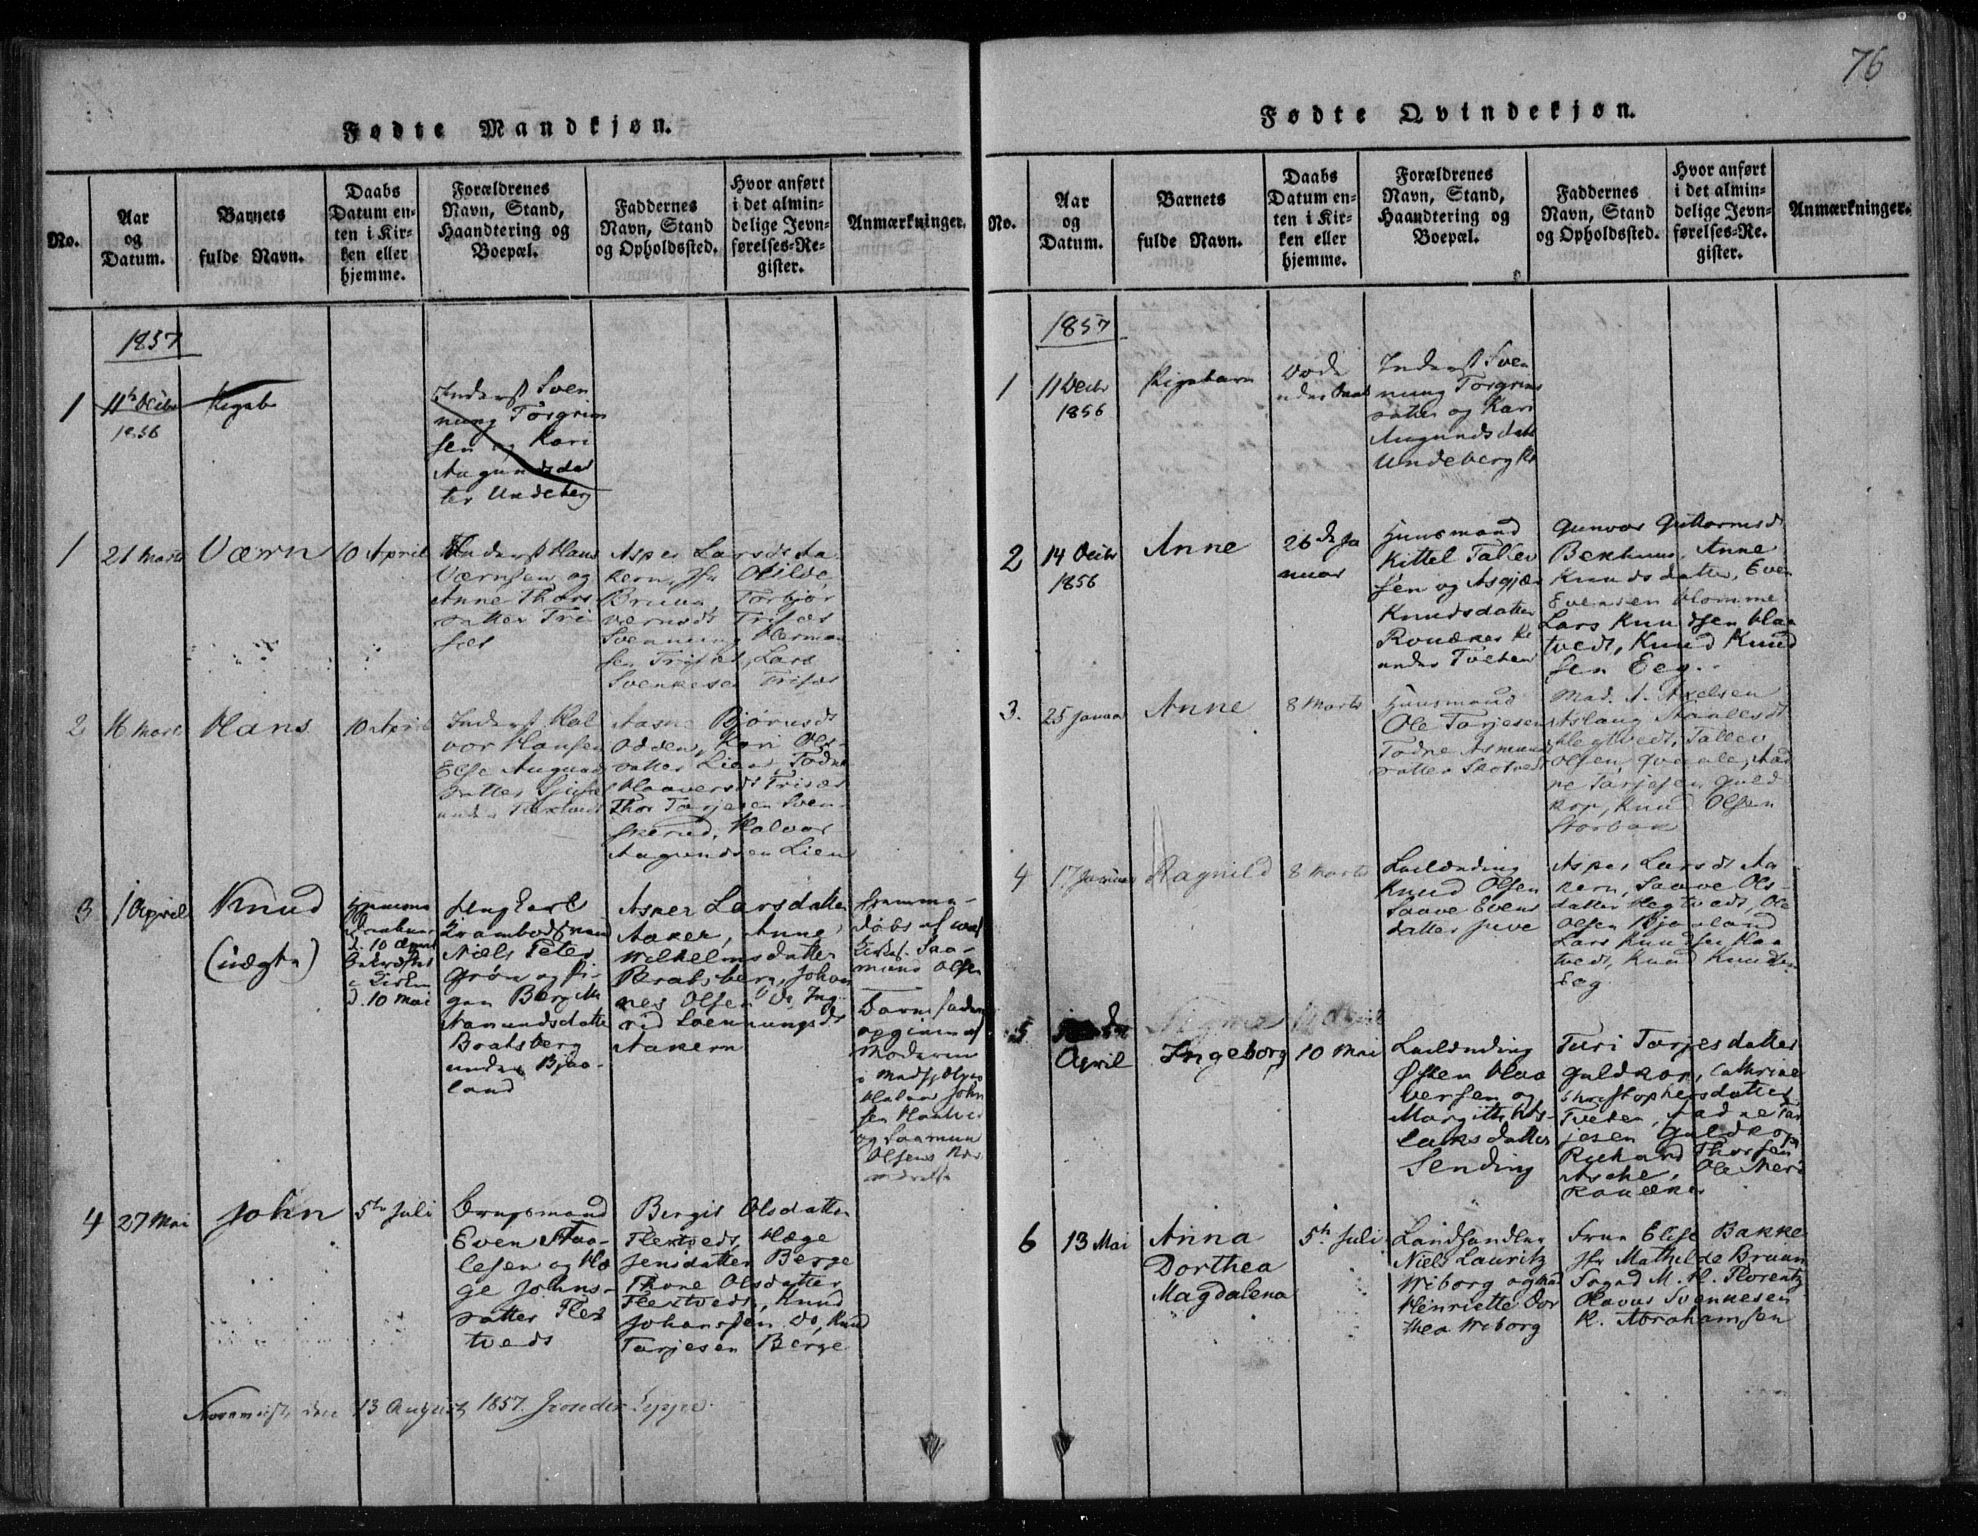 76
Fødte Mandkjøn.
No.
Aar
og
Datum.
Barnets
fulde Navn.
Daabs
Datum en-
ten i Kir-
ken eller
hjemme.
Forældrenes
Navn, Stand,
Haandtering og
Boepæl.
Faddernes
Navn, Stand
og Opholdssted.
Hvor anført
i det almin-
delige Jevn-
førelses-Re-
gister.
Anmærkninger.
1857
1
11te Decbr
1856
Pigeb
Inderst Sven
nung Torgrim
sen og Kari
Aagundsdat
ter Undeberg
1
21 Marts
Værn
10 April
Inderst Hans
Værnsen og
Anne Thors
datter Tri
sæt
Asper Larsdt Aa
kern, Jfr Otilde
Bruun, Torbjør
Værnsdt Trisæt
Svennung Herman
sen Trisæt, Lars
Svenkesen Trisæt
2
16 Marts
Hans
10 April
Inderst Hal
vor Hansen
Else Augunds
datter
under
Aasne Bjørnsdt
Odden, Kari Ols-
datter Lien, Todne
Haaversdt Trisæt
Thor Tarjesen Sven-
skerud, Halvor
Aagundsen Lien
3
1 April
Knud
(uægte)
Hjemme
d. 10 April
i Kirken
d. 10 Mai
Ungkarl
Niels Peter
Grøn og Pi-
gen Bergit
Aamundsdatter
Bratsberg
under Bjaa-
land
Asper Larsdatter
Aaker, Anne
Wilhelmsdatter
Bratsberg, Johan
nes Olsen do, Ing-
rid Svennungsdt
Aakern
Hjemme-
døbt af
Saa-
mund Olsen
Barnefader
opgiven af
Moderen
Halvor John
sen
og Saamund
Olsen
4
27 Mai
John
5te Juli
Brugsmand
Even Staa-
lesen og Hæ
ge Johns-
datter Flek
tvedt
Bergit Olsdatter
Flektvedt, Hæge
Jensdatter Berge
Thone Olsdatter
Flektvedt, Knud
Johansen do, Knud
Tarjesen Berge
13 August 1857.
Fødte Qvindekjøn.
No.
Aar
og
Datum.
Barnets
fulde Navn.
Daabs
Datum en-
ten i Kir-
ken eller
hjemme.
Forældrenes
Navn, Stand,
Haandtering og
Boepæl.
Faddernes
Navn, Stand
og Opholdssted.
Hvor anført
i det almin-
delige Jevn-
førelses-Re-
gister.
Anmærkninger.
1857
1
11 Decbr
1856
Pigebarn
Døde
uden Daab
Inderst Sven
nung Torgrims
datter og Kari
Augundsdatt
Undeberg
2
14 Decbr
1856
Anne
26de Ja
nuar
Huusmand
Kittel Tallev
sen og Asgjær
Knudsdatter
Rouæker
under Tveten
Gunvor Guttormsdt
Bekhuus, Anne
Knudsdatter, Even
Evensen Homme
Lars Knudsen Haa
tvedt, Knud Knud
sen Eeg.
3.
25 Januar
Anne
8 Marts
Huusmand
Ole Tarjesen
Todne Asmunds
datter Skotvedt
Mad. A. Axelsen
Aslaug Staalesdt
Hegtvedt, Tallev
Olsen Qvaale, Aad
ne Tarjesen Guld
kop, Knud Olsen
Storbak
4
17 Januar
Ragnild
8 Marts
Leilænding
Knud Olsen
Saave Evens
datter Juve
Asper Larsdt Aa
kern, Saave Ols-
datter Hegtvedt, Ole
Olsen Bjaaland
Lars Knudsen Haa
tvedt, Knud Knudsen
Eeg
5
April
Ingeborg
10 Mai
Leilænding
Østen Haa
versen og
Margith As-
laksdatter
Sending
Turi Tarjesdatter
Guldkop, Cathrine
Christophersdatter
Tveten, Aadne Tar
jesen Guldkop
Richard Thorsen
Asche, Ole
Rouæker
6
13 Mai
Anna
Dorthea
Magdalena
5te Juli
Landhandler
Niels Lauritz
Wiborg og Mad
Henriette Dor
thea Wiborg
Frue Elise Bakke
Jfr Mathilde Bruun
Foged M. H. Florentz
Olavus Svennesen
K. Abrahamsen